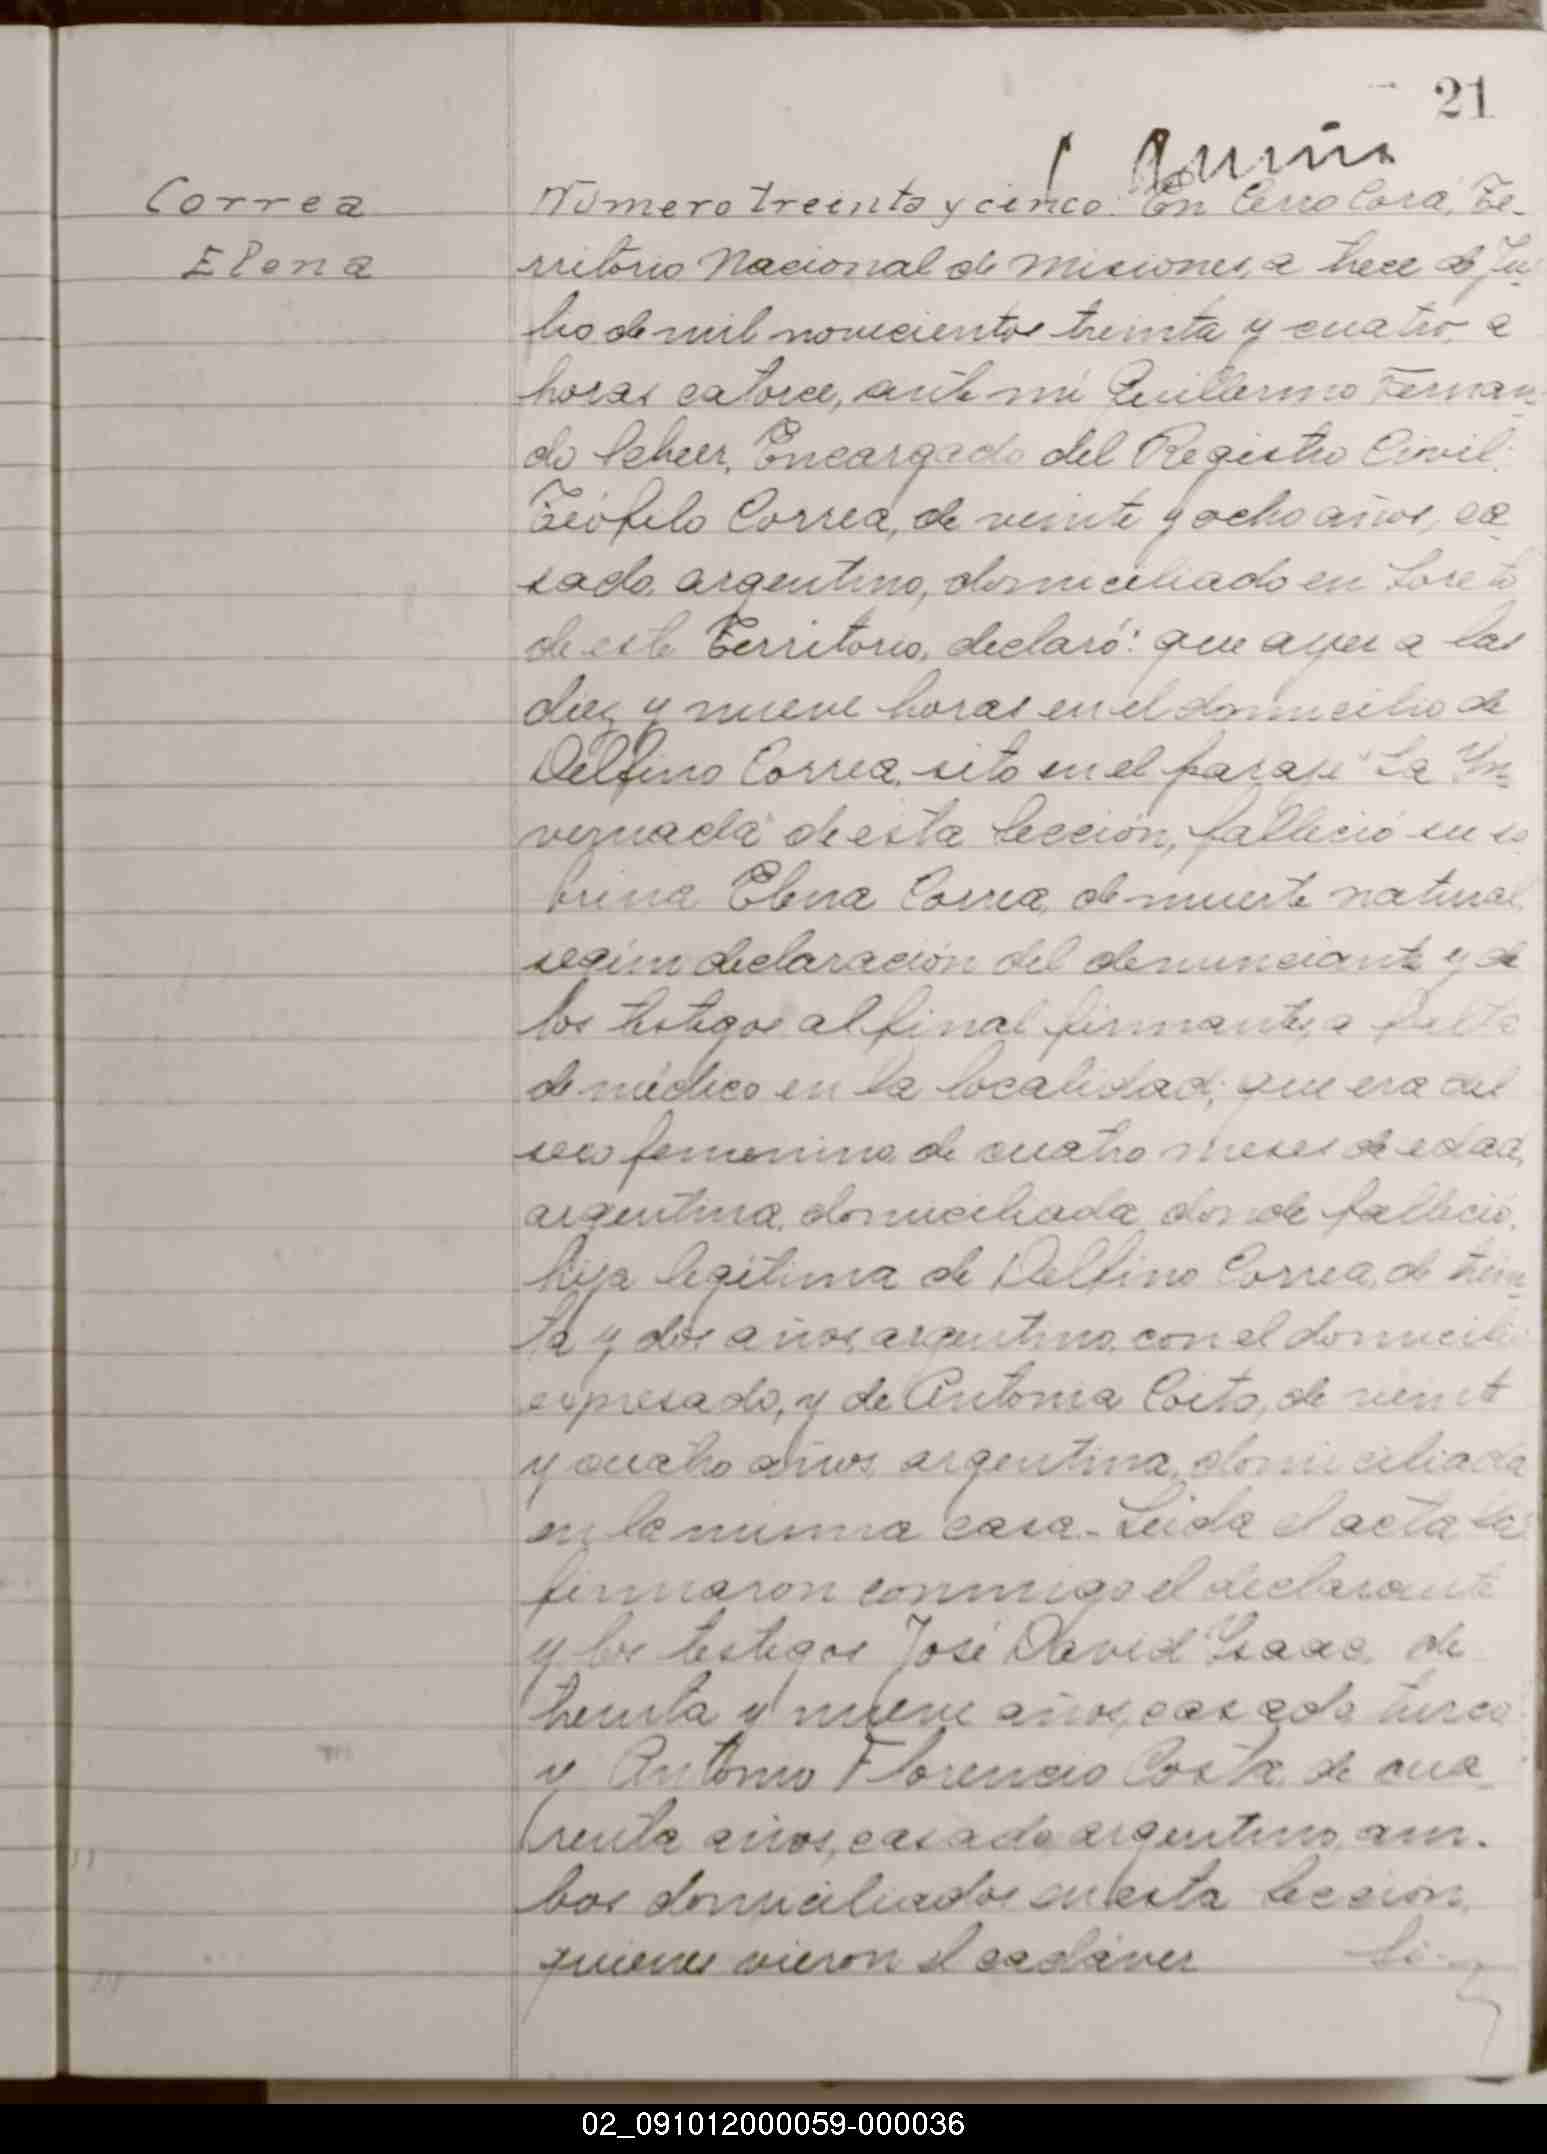 21
Correa
Elena
Número treinta y cinco. En Cerro Corá, Te-
rritorio Nacional de Misiones, a trece de Ju-
lio de mil novecientos treinta y cuatro, a
horas catorce, ante mí Guillermo Fernan-
do Scheer, Encargado del Registro Civil:
Teófilo Correa, de veinte y ocho años, ca-
sado, argentino, domiciliado en Loreto
de este Territorio, declaró: que ayer a las
diez y nueve horas en el domicilio de
Delfino Correa, sito en el paraje "La In-
vernada" de esta Sección, falleció su so
brina Elena Correa, de muerte natural,
según declaración del denunciante y de
los testigos al final firmantes, a falta
de médico en la localidad; que era del
sexo femenino, de cuatro meses de edad,
argentina, domiciliada donde falleció,
hija legítima de Delfino Correa, de trein-
ta y dos años, argentino, con el domicilio
expresado, y de Antonia Coito, de veinte
y cuatro años, argentina, domiciliada
en la misma casa.- Leída el acta la
firmaron conmigo el declarante
y los testigos José David Isaac, de
treinta y nueve años, casado, turco
y Antonio Florencio Costa, de cua-
renta años, casado, argentino, am-
bos domiciliados en esta Sección,
quienes vieron el cadáver
02_091012000059-000036